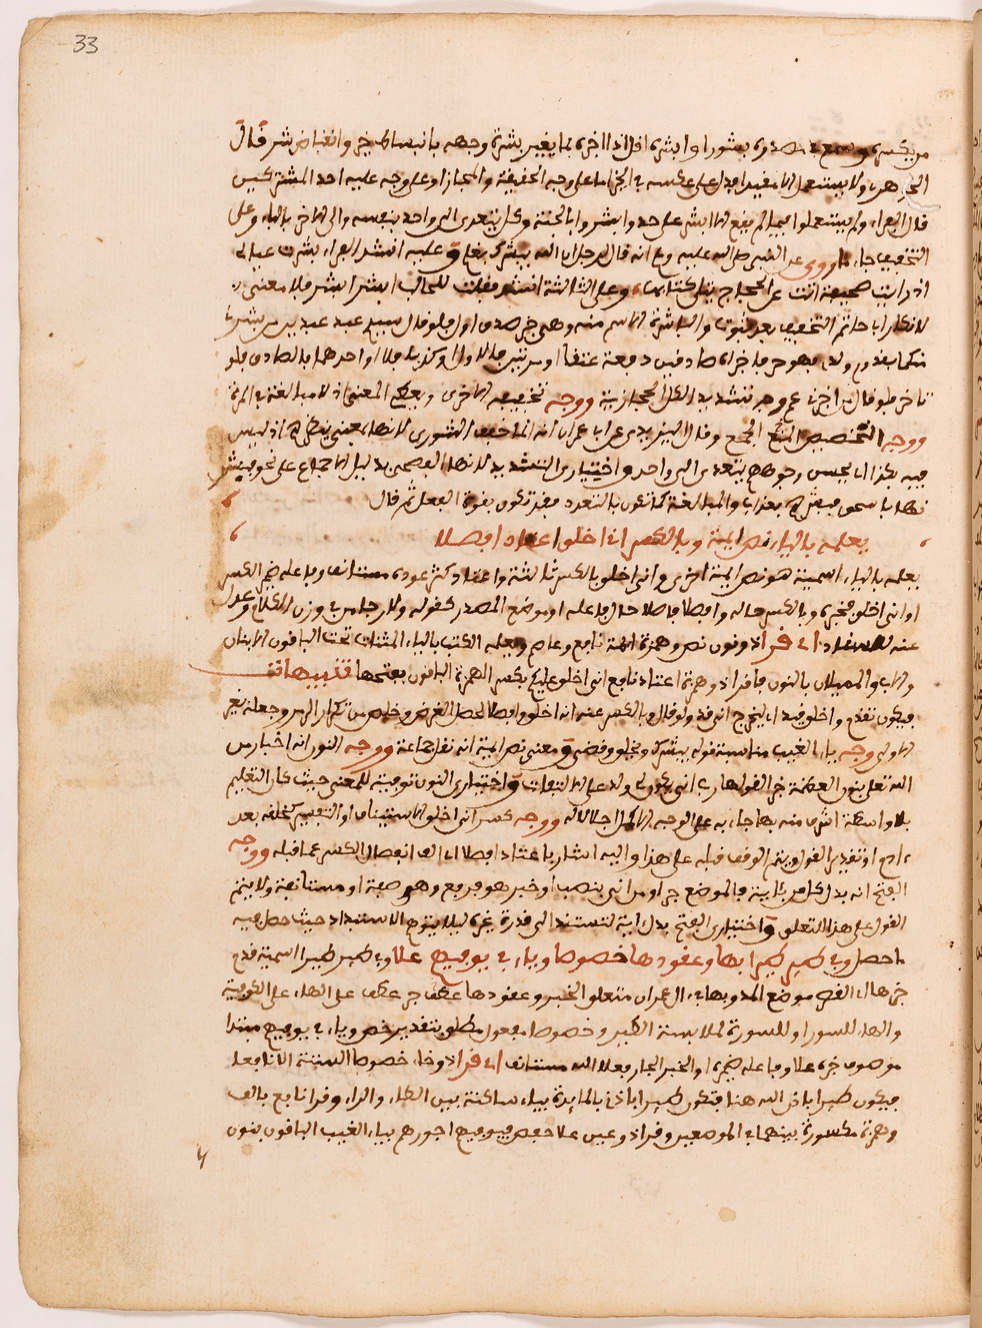 33
من يكسره مصدره بشورا وابشره افل اذا اخبره بما يغير بشرة وجهه بانبساط خير وانقباض شر قال
الجوهري ولا يستعمل الا مقيدا على عكسه في الخير اما على وجه الحقيقة والمجاز او على وجه عليه احد المشتركين
قال الفراء ولم يستعملوا الا ابشر على حد وابشروا بالجنة وكل يتعدى الى واحد بنفسه والى الاخر بالباء وعلى
التخفيف جاء ما روي عن النبي صلى الله عليه وسلم انه قال لرجل ان الله يبشرك بغلام وعليه انشد الفراء بشرت عيالي
اذ رايت صحيفة اتتك من الحجاج يتلى كتابها وعلى الثالثة للحجاب ابشر ابشر فلا معنى
لانكار ابي حاتم التخفيف بعد ثبوت والبشارة الاسم منه وهي خبر صدق اول فلو قال سيد عبد عبيد من بشرني
منكما بقدوم ولدي فهو حر فاخبراه صادقين دفعة عتقا او مرتبين فالاول او كذبا فلا او احدهما فالصادق فلو
تاخر ولو قال من اخبرني عم وجه تشديد الكل الحجازية ووجه تخفيفه الاخرى ويعكم المعنى اذ لا مبالغة في المرة
ووجه التخصيص الجمع وقال اليزيدي عن ابي عمرو انه انما خفف الشورى لانها بمعنى ينضر اذ ليس
فيه بكذا اي يحسن وجوههم يتعدى الى واحد واختياري التشديد لانها الفصحى بدليل الاجماع على نحو فبشر
نها باسحق فبشرهم بعذاب والمبالغة كما تكون بالتعدد فقد تكون بقوة الفعل ثم قال
يعلمه بالياء نص ايمة وبالكسر اني اخلق اعتاد افصلا
يعلمه بالياء اسمية هو نص ايمة اخرى واني اخلق بالكسر ثالثة واعتاد كثر عوده مستانف وفاعله ضمير الكسر
او اني اخلق مخبره وبالكسر حاله وافصلا فاصلا حال فاعله او موضع المصدر كقوله ولا خارجا من في زور الكلام وعدل
عنه اي قرا ذو نون نص وهمزة ائمة نافع وعاصم ويعلمه الكتب بالياء المثناة تحت الباقون الابنان
والاب والمميلان بالنون فاقرا ذو همزة اعتاد نافع اني اخلق عليكم بكسر الهمزة الباقون بفتحها تنبيهات
فيكون تقدم واخلق قيد اي ليخرج اني قد ولو قال وبالكسر عنه انه اخلق وافصلا لحصل الغرض وخلص من تكرار الرمز وجعله نص
الاولى وجه ياء الغيب مناسبة قوله يبشرك ويخلق وقضى ومعنى نص ايمة انه نقل جماعة ووجه النون انه اخبار من
الله تعلى بنون العظمة جبرا لقولها رب انى يكون لي ولد على الالتفات واختياري النون توفية للمعنى حيث كان التعليم
بلا واسطة اشرف منه بها جاء به على الوجه الاكمل اجلالا له ووجه كسر اني اخلق الاستيناف او التفسير كخلقه بعد
ءادم او تقدير القول ويتم الوقف قبله على هذا واليه اشار باعتاد افصلا اي الف انفصال الكسر عما قبله ووجه
الفتح انه بدل كل من باية فالموضع جر او من اني بنصب او خبر هو فرفع وهو صفة او مستانفة ولا يتم
القول على هذا التعلق واختياري الفتح بدل اية لتستند الى قدرة غيره ليلا يتوهم الاستبداد حيث حصل فيه
ما حصل وفي طير طيرا بها وعقودها خصوصا وياء في يوفيهم علا وفي طير طيرا اسمية قدم
خبرها اي القصر موضع المد وبها في ال عمران متعلق الخبر وعقودها عطف جر عطف على الهاء على الكوفية
والهاء للسور او للسورة لملابسة الطير وخصوصا مفعول مطلق بتقدير خص وياء في يوفيهم مبتدا
موصوف خبره علا وفاعله ضميره او الخبر الجار فعلا الله مستانف اي قرا ذو خاء خصوصا الستة الا نافعا
فيكون طيرا باذن الله هنا فتكون طيرا باذني بالمايدة بياء ساكنة بين الطاء والراء وقرا نافع بالف
وهمزة مكسورة بينهما في الموضعين وقرا ذو عين علا حفص فيوفيهم اجورهم بياء الغيب الباقون بنون